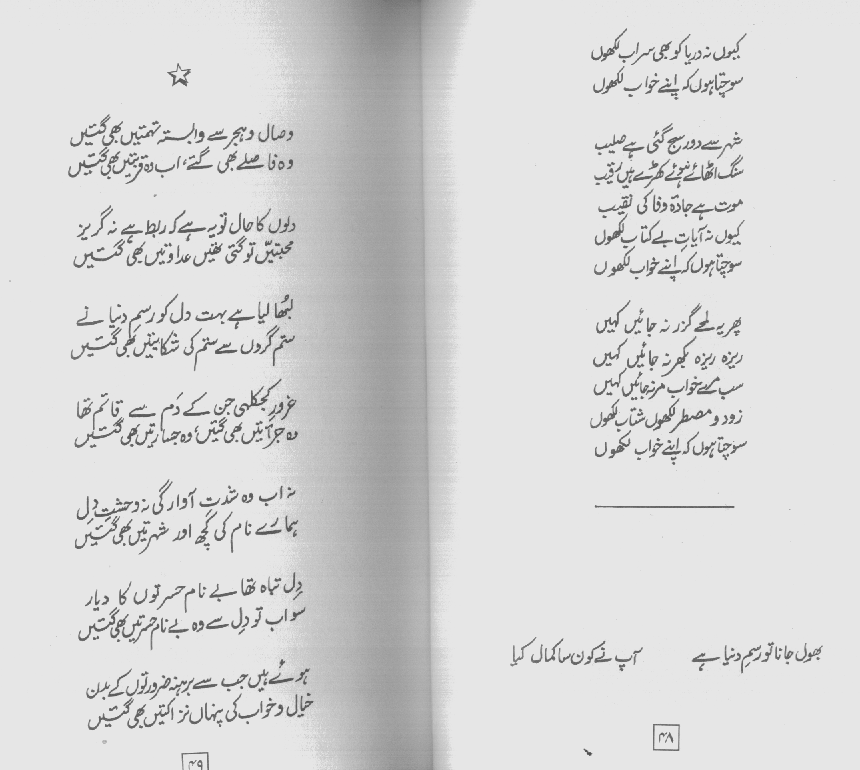 کیوں نہ دریا کو بھی سراب لکھوں
سوچتا ہوں کہ اپنے خواب لکھوں
شہر سے دور سج گئی ہے صلیب
سنگ اٹھائے ہوئے کھڑے ہیں رقیب
موت ہے جادۂ وفا کی نقیب
کیوں نہ آیات بے کتاب لکھوں
سوچتا ہوں کہ اپنے خواب لکھوں
پھر یہ لمحے گزر نہ جائیں کہیں
ریزہ ریزہ بکھر نہ جائیں کہیں
سب مرے خواب مر نہ جائیں کہیں
زود و مضطر لکھوں شتاب لکھوں
سوچتا ہوں کہ اپنے خواب لکھوں
بھول جانا تو رسمِ دنیا ہے آپ نے کون سا کمال کیا
۴۸
وصال و ہجر سے وابستہ تہمتیں بھی گئیں
وہ فاصلے بھی گئے، اب وہ قربتیں بھی گئیں
دلوں کا حال تو یہ ہے کہ ربط ہے نہ گریز
محبتیں تو گئی تھیں عداوتیں بھی گئیں
لبھا لیا ہے بہت دل کو رسمِ دنیا نے
ستم گروں سے ستم کی شکایتیں بھی گئیں
غرورِ کجکلہی جن کے دَم سے قائم تھا
وہ جرأتیں بھی گئیں، وہ جسارتیں بھی گئیں
نہ اب وہ شدت آوارگی نہ وحشتِ دِل
ہمارے نام کی کچھ اور شہرتیں بھی گئیں
دِل تباہ تھا بے نام حسرتوں کا دیار
سو اب تو دِل سے وہ بے نام حسرتیں بھی گئیں
ہوئے ہیں جب سے برہنہ ضرورتوں کے بدن
خیال و خواب کی پنہاں نزاکتیں بھی گئیں
۴۹